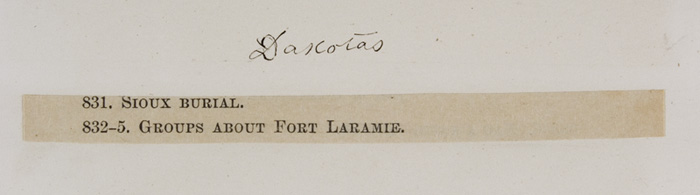 Dakotas
831. Sioux burial.
832-5. Groups about Fort Laramie.